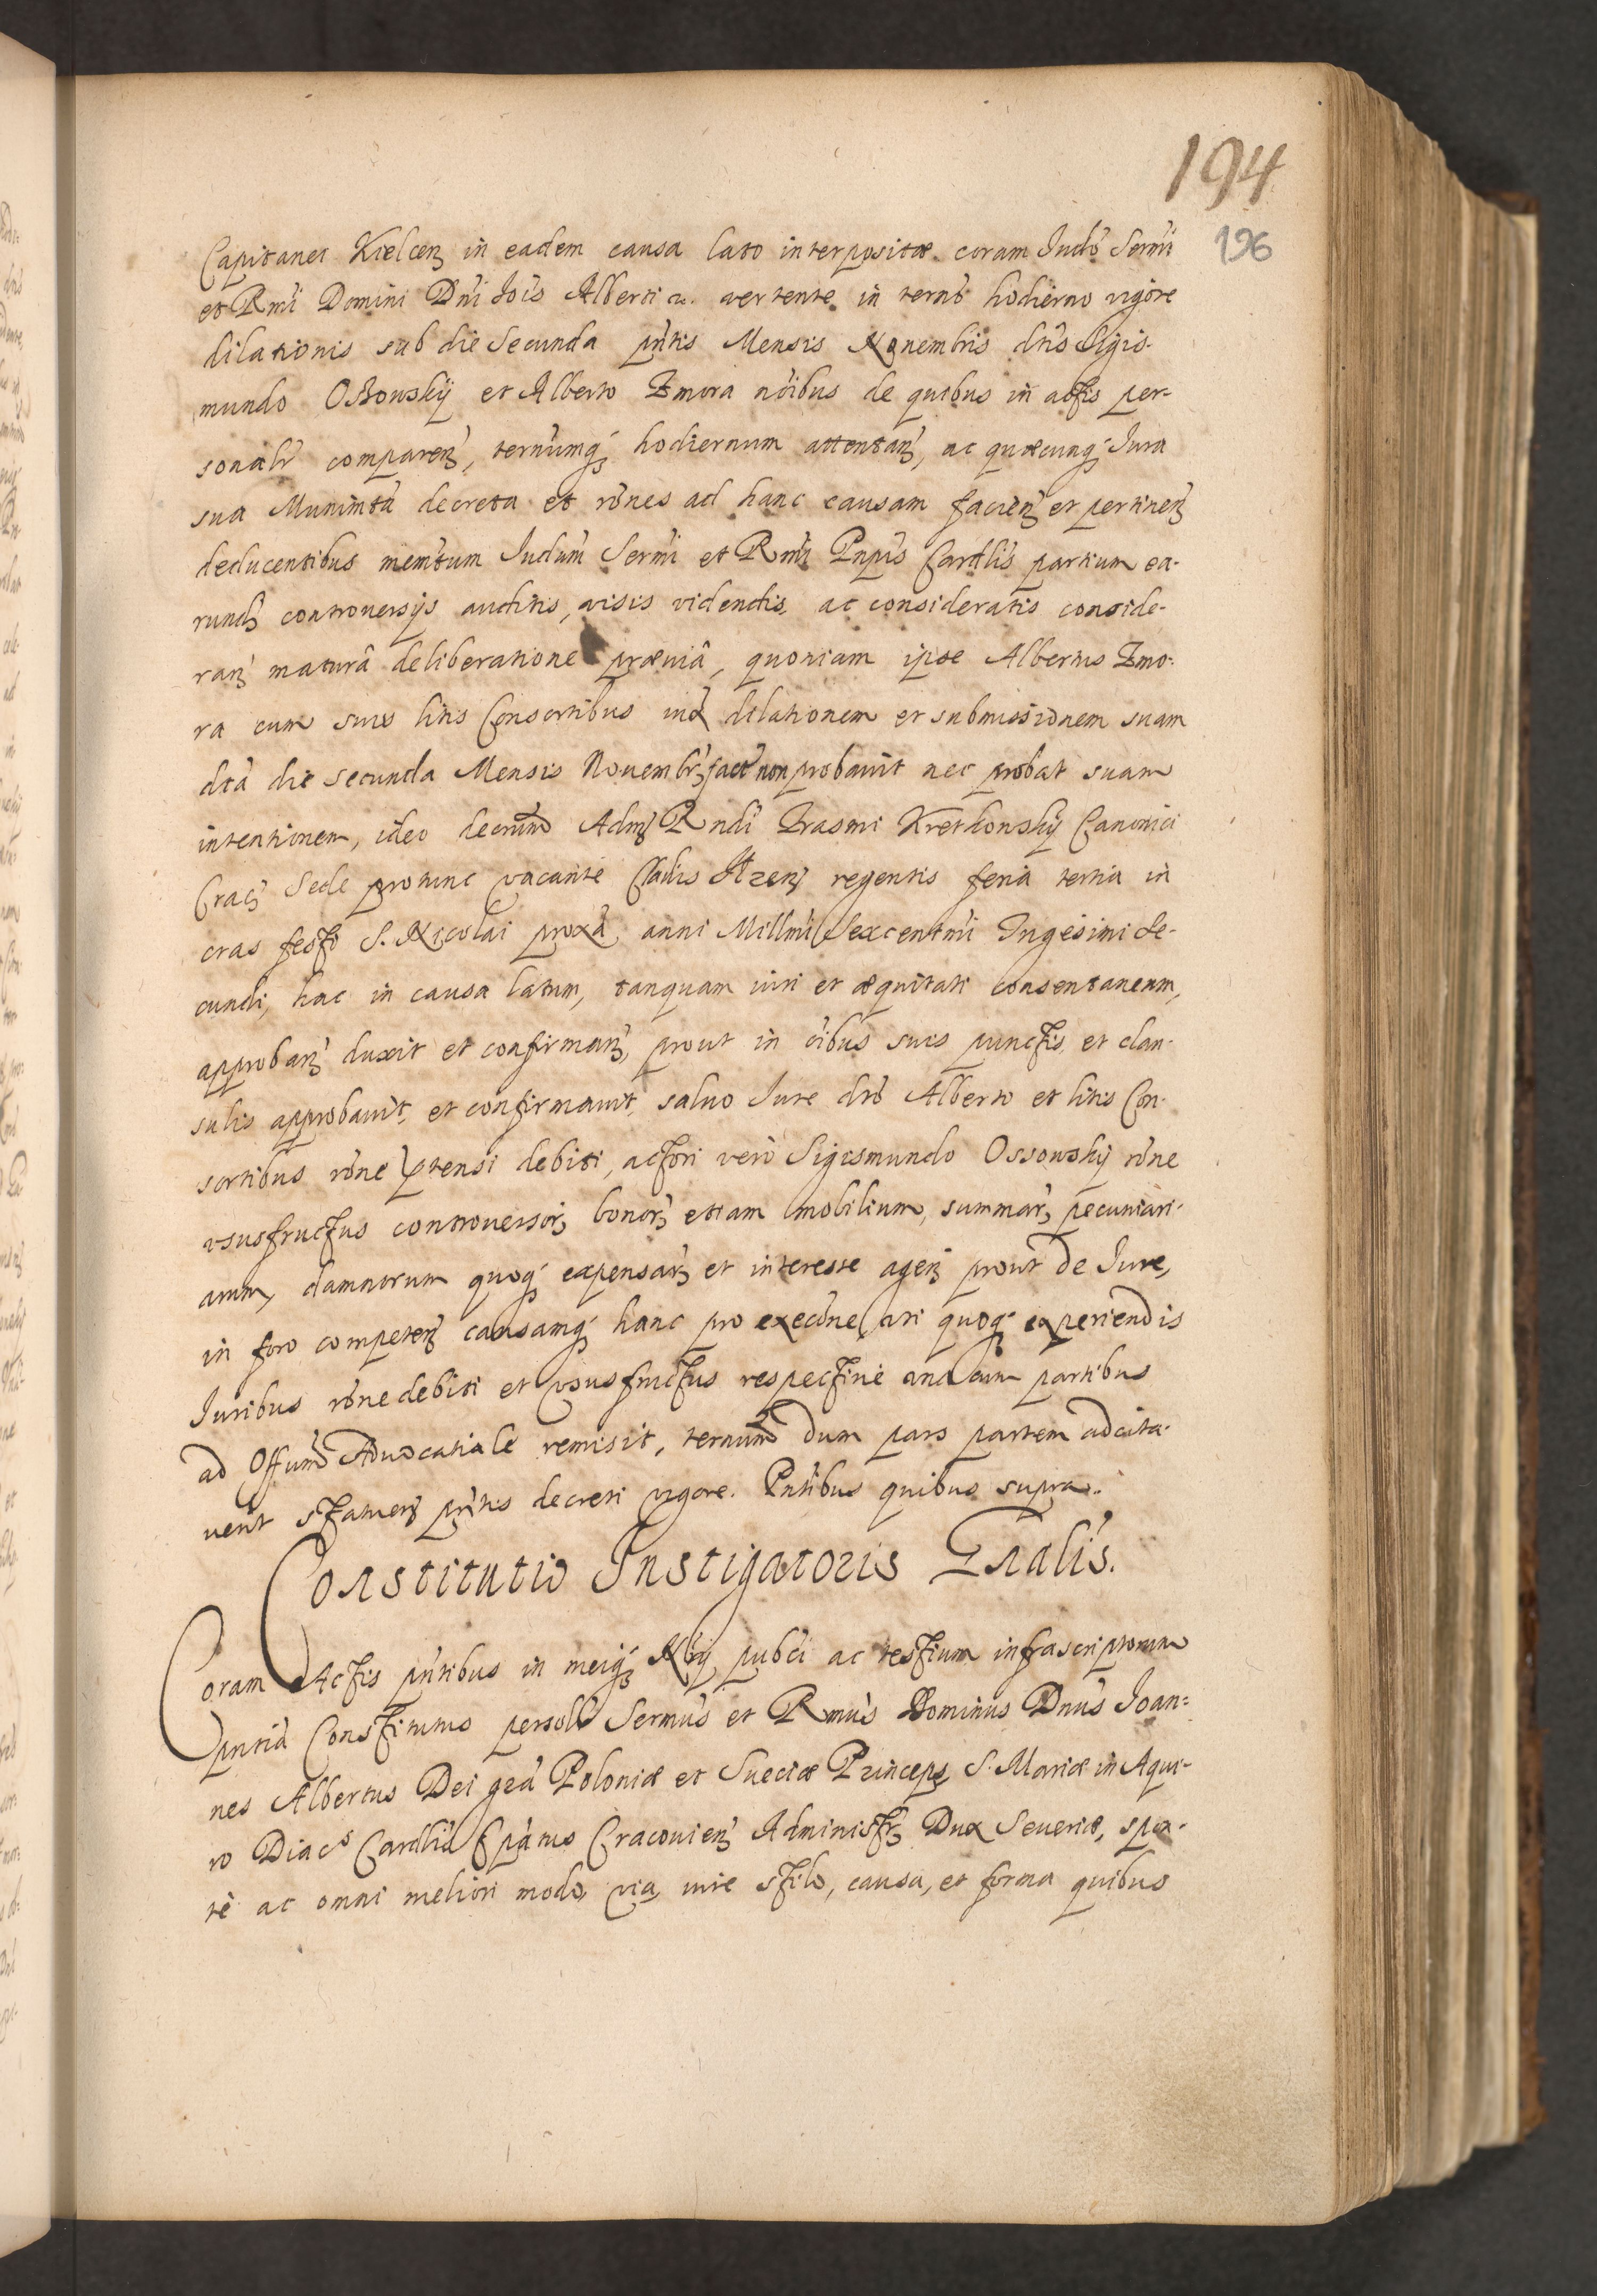 194
196
Capitanei Kielcen in eadem causa lato interpositæ coram Judõ Sermi
et Rmi Domini Dni Jois Alberti &c. vertente in termo hodierno vigore
dilationis sub die Secunda pntis Mensis Nouembris dtis Sigis-
mundo Ossowskÿ et Alberto Zmora noibus de quibus in actis per-
sonalr comparen, termumq hodiernum attentan, ac quæcunq Jura
sua Munimta decreta et rones ad hanc causam facien et pertinen
deducentibus memtum Judum Sermi et Rmi Pnpis Cardlis partium ea-
rund controuersÿs auditis, visis videndis, ac consideratis conside-
ran maturâ deliberatione præuiâ, quoniam ipse Albertus Zmo-
ra cum suis litis Consortibus dilationem et submissionem suam
dtã die secunda Mensis Nouembr non probauit nec probat suam
intentionem, ideo decrum Adm Rndi Erasmi Kretkonskÿ Canonici
Crac Sede protunc vacante regentis feria tertia in
cras festi S. Nicolai proxa anni Millmi Sexcentmi Trigesimi se-
cundi, hac in causa latum, tanquam iuri et æquitati consentaneum,
approban duxit et confirman, prout in oibus suis punctis et clau-
sulis approbauit, et confirmauit, saluo Jure dto Alberto et litis Con-
sortibus rone prtensi debiti, actori vero Sigismundo Ossowskÿ rone
vsusfructus controuersor, bonor etiam mobilium, summar pecuniari-
arum, damnorum quoq expensar et interesse agen prout de Jure,
in foro competen causamq hanc pro execone, uti quoq experiendis
Juribus rone debiti et vsusfructus respectiue una cum partibus
ad Offum Aduocatiale remisit, termum dum pars partem adcita-
uerit statuen pntis decreti vigore. Pntibus quibus supra.
Constitutio Instigatoris Gnalis.
Coram Actis pntibus in meiq Nrÿ pubci ac testium infrascriptorum
pntia Constitutus persolr Sermus et Rmus Dominus Dnus Joan-
nes Albertus Dei gra Poloniæ et Sueciæ Princeps S. Mariæ in Aqui-
ro Diacs Cardlis Epatus Cracouien Administr Dux Seueriæ, spon-
te ac omni meliori modo, via, iure stilo, causa, et forma quibus